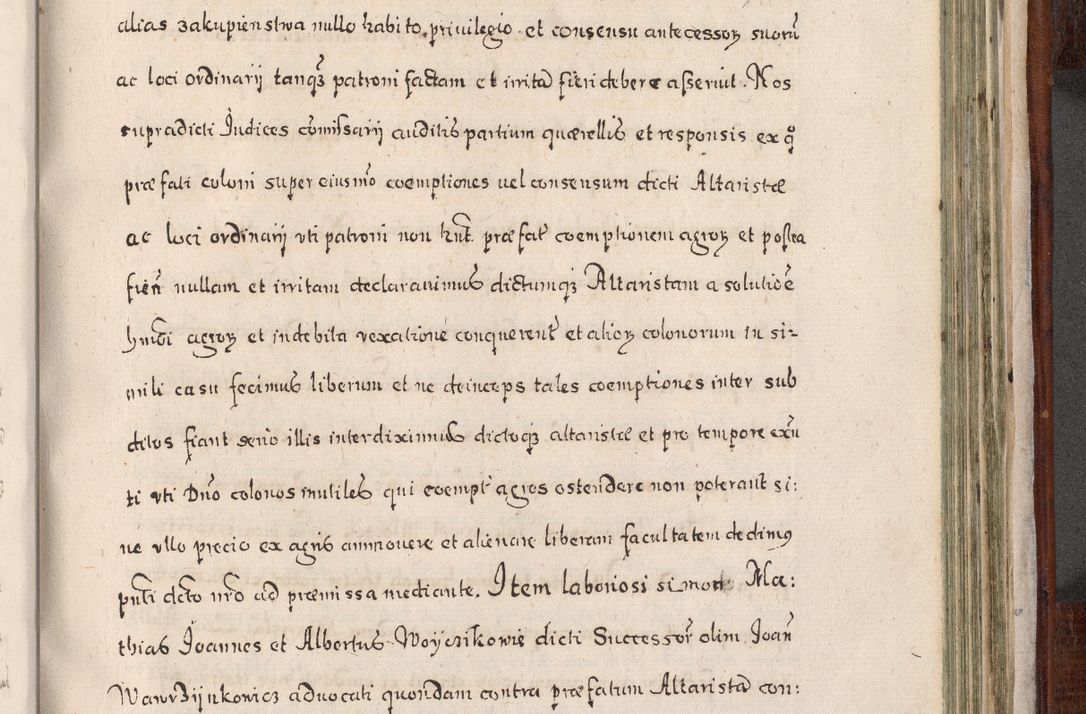 alias zakupienstwa nullo habito privilegio et consensu antecessoꝝ suorū
ac loci ordinarij tanqꝫ patroni factam et irritā fieri debere asseruit. Nos
supradicti Judices cōmissarij auditis partium quærellis et responsis ex qͦ
præfati coloni super eiusmo̅ coemptiones vel consensum dicti Altaristæ
ac loci ordinarij vti patroni non hn̅t. præfat̅ coemptionem agroꝝ et postea
fien̅ nullam et irritam declaravimus dictumqꝫ Altaristam a solutiōe
hmo̅i agroꝝ et indebita vexatione conquerent̅ et alioꝝ colonorum in si-
mili casu fecimus liberum et ne deinceps tales coemptiones inter sub
ditos fiant serio illis interdiximus dictoqꝫ altaristæ et pro tempore exn̅
ti vti Dn̅o colonos inutiles qui coempt̅ agros ostendere non poterant si:
ne vllo precio ex agris ammovere et alienare liberam facultatem dedimꝯ
pn̅ti dc̅to nr̅o ad præmissa mediante. Item laboriosi simon Ma:
thias Joannes et Albertus Woyczikowie dicti Successor̅ olim Joan̅
Wawrzijnkowicz advocati quondam contra præfatum Altaristā con: